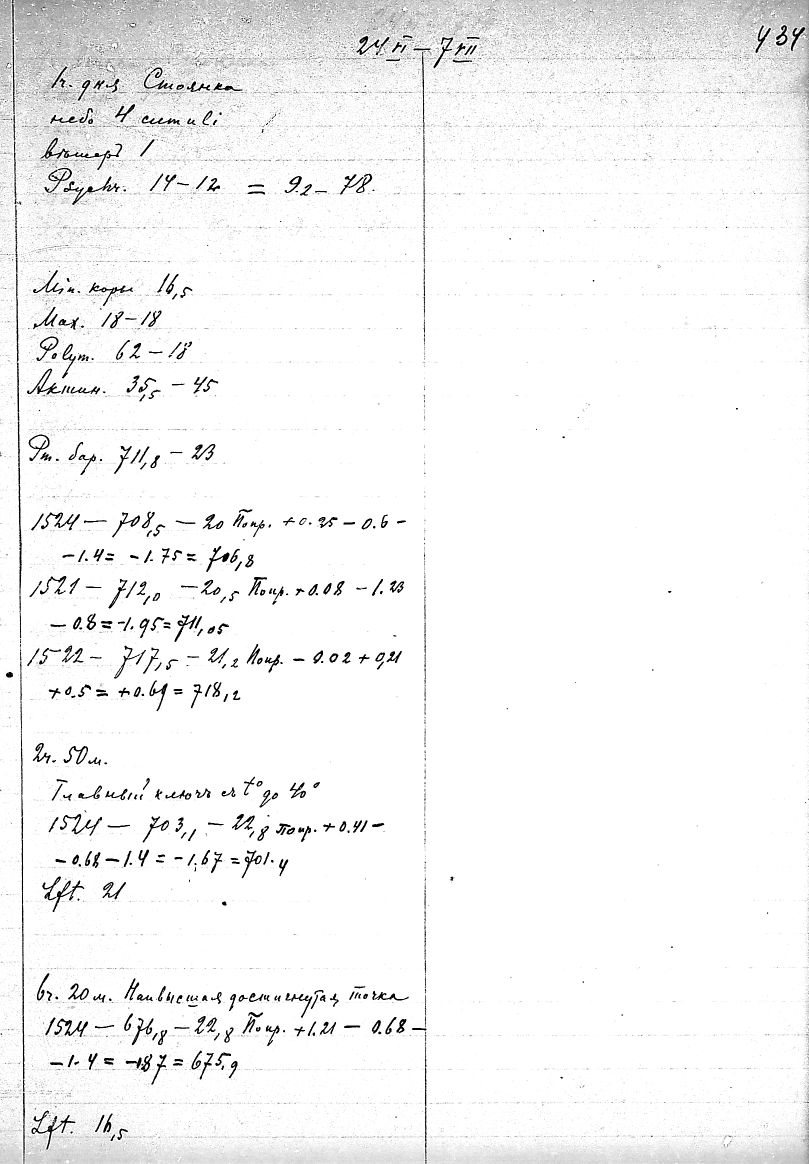 434
24 VI – 7 VII
1ч. дня Стоянка
небо 4 cumuli
вѣтеръ 1
Psychr. 14–12 = 9.2– 78.
Min. коры 16,5
Max. 18–18
Polym. 62 – 18
Актин. 35,5 – 45
Рт. бар. 711,8 – 23
1524 — 708,5 — 20 Попр. +0.25 – 0.6 –
–1.4 = –1.75 = 706,8
1521 – 712,0 – 20,5 Попр. +0.08 – 1.23
– 0.8 = –1.95 = 711,05
1522 – 717,5 – 21,2 Попр. – 0.02 + 0,21
+0.5 = +0.69 = 718,2
2ч. 50 м.
Главный ключъ съ t° до 40°
1524 — 703,1 – 22,8 Попр. +0.41 –
– 0.68 – 1.4 = –1.67 = 701.4
Lft. 21
6ч. 20 м. Наивысшая достигнутая точка
1524 — 676,8 – 22,8 Попр. +1.21 – 0.68 –
–1.4 = –·87 = 675,9
Lft. 16,5